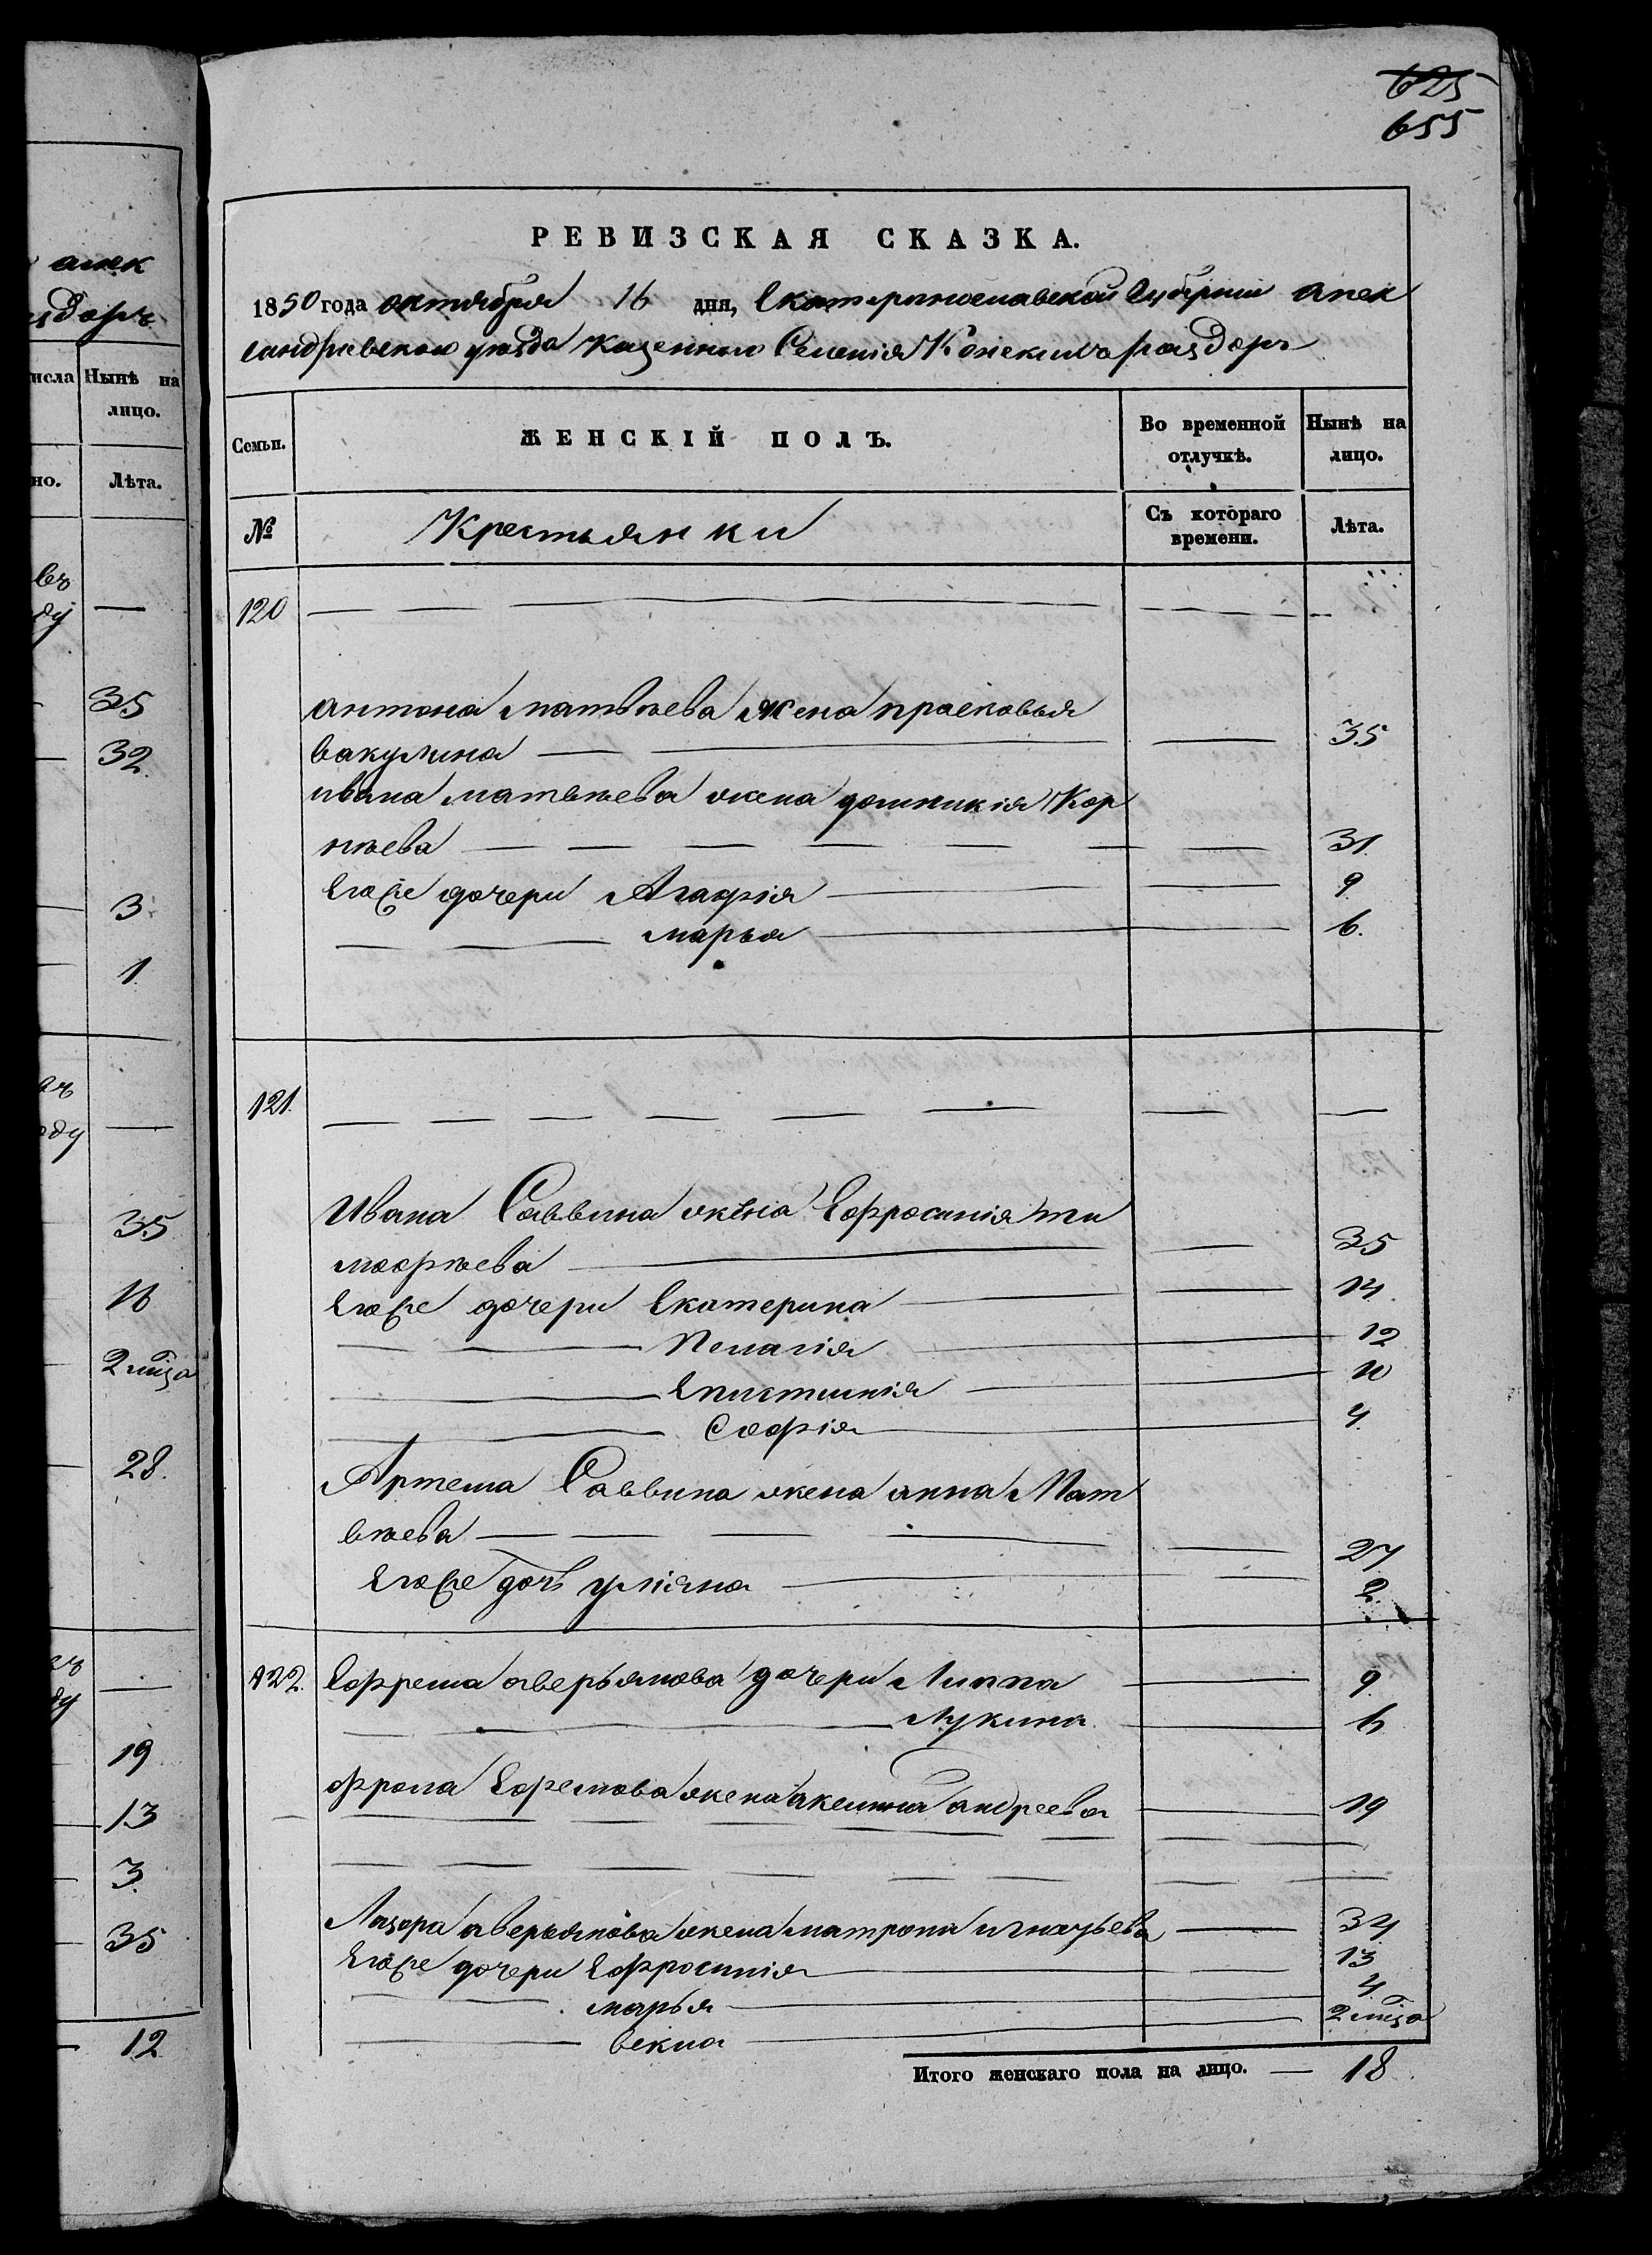 625
655
РЕВИЗСКАЯ СКАЗКА.
1850 года октября 16 дня, Екатеринославской Губернии алек
сандровского уѣзда Казенного Селенія Конскихъ раздоръ
Семьи.
ЖЕНСКІЙ ПОЛЪ.
Во временной отлучкѣ.
Нынѣ на лицо.
№
Крестьянки
Съ котораго времени.
Лѣта.
120
антона матвѣева жена прасковья
вакулина 35
ивана матвѣева жена домникія Кор
нѣева 31.
Егоже дочери Агафія 9
марья 6.
121.
Ивана Саввина жена Ефросинія ти
мофѣева 35
Егоже дочери Екатерина 14.
Пелагія 12
Епистинія 10
Софія 4.
Артема Саввина жена анна Мат
вѣева 27
Егоже дочь уліяна 2.
122. Ефрема аверьянова дочери Анна 9.
Лукина 6
фрола Ефремова жена акелина андреева 19
Лазора аверьянова жена матрона игнатьева 34
Егоже дочери Ефросинія 13
марья 4
векла 2 мца
Итого женскаго пола на лицо. — 18
алек
здоръ
числа
Нынѣ на
лицо.
но.
Лѣта.
въ
ду
35
32.
3
1
ду
35
16
2 мца
28.
ду
19
13
3.
35
12